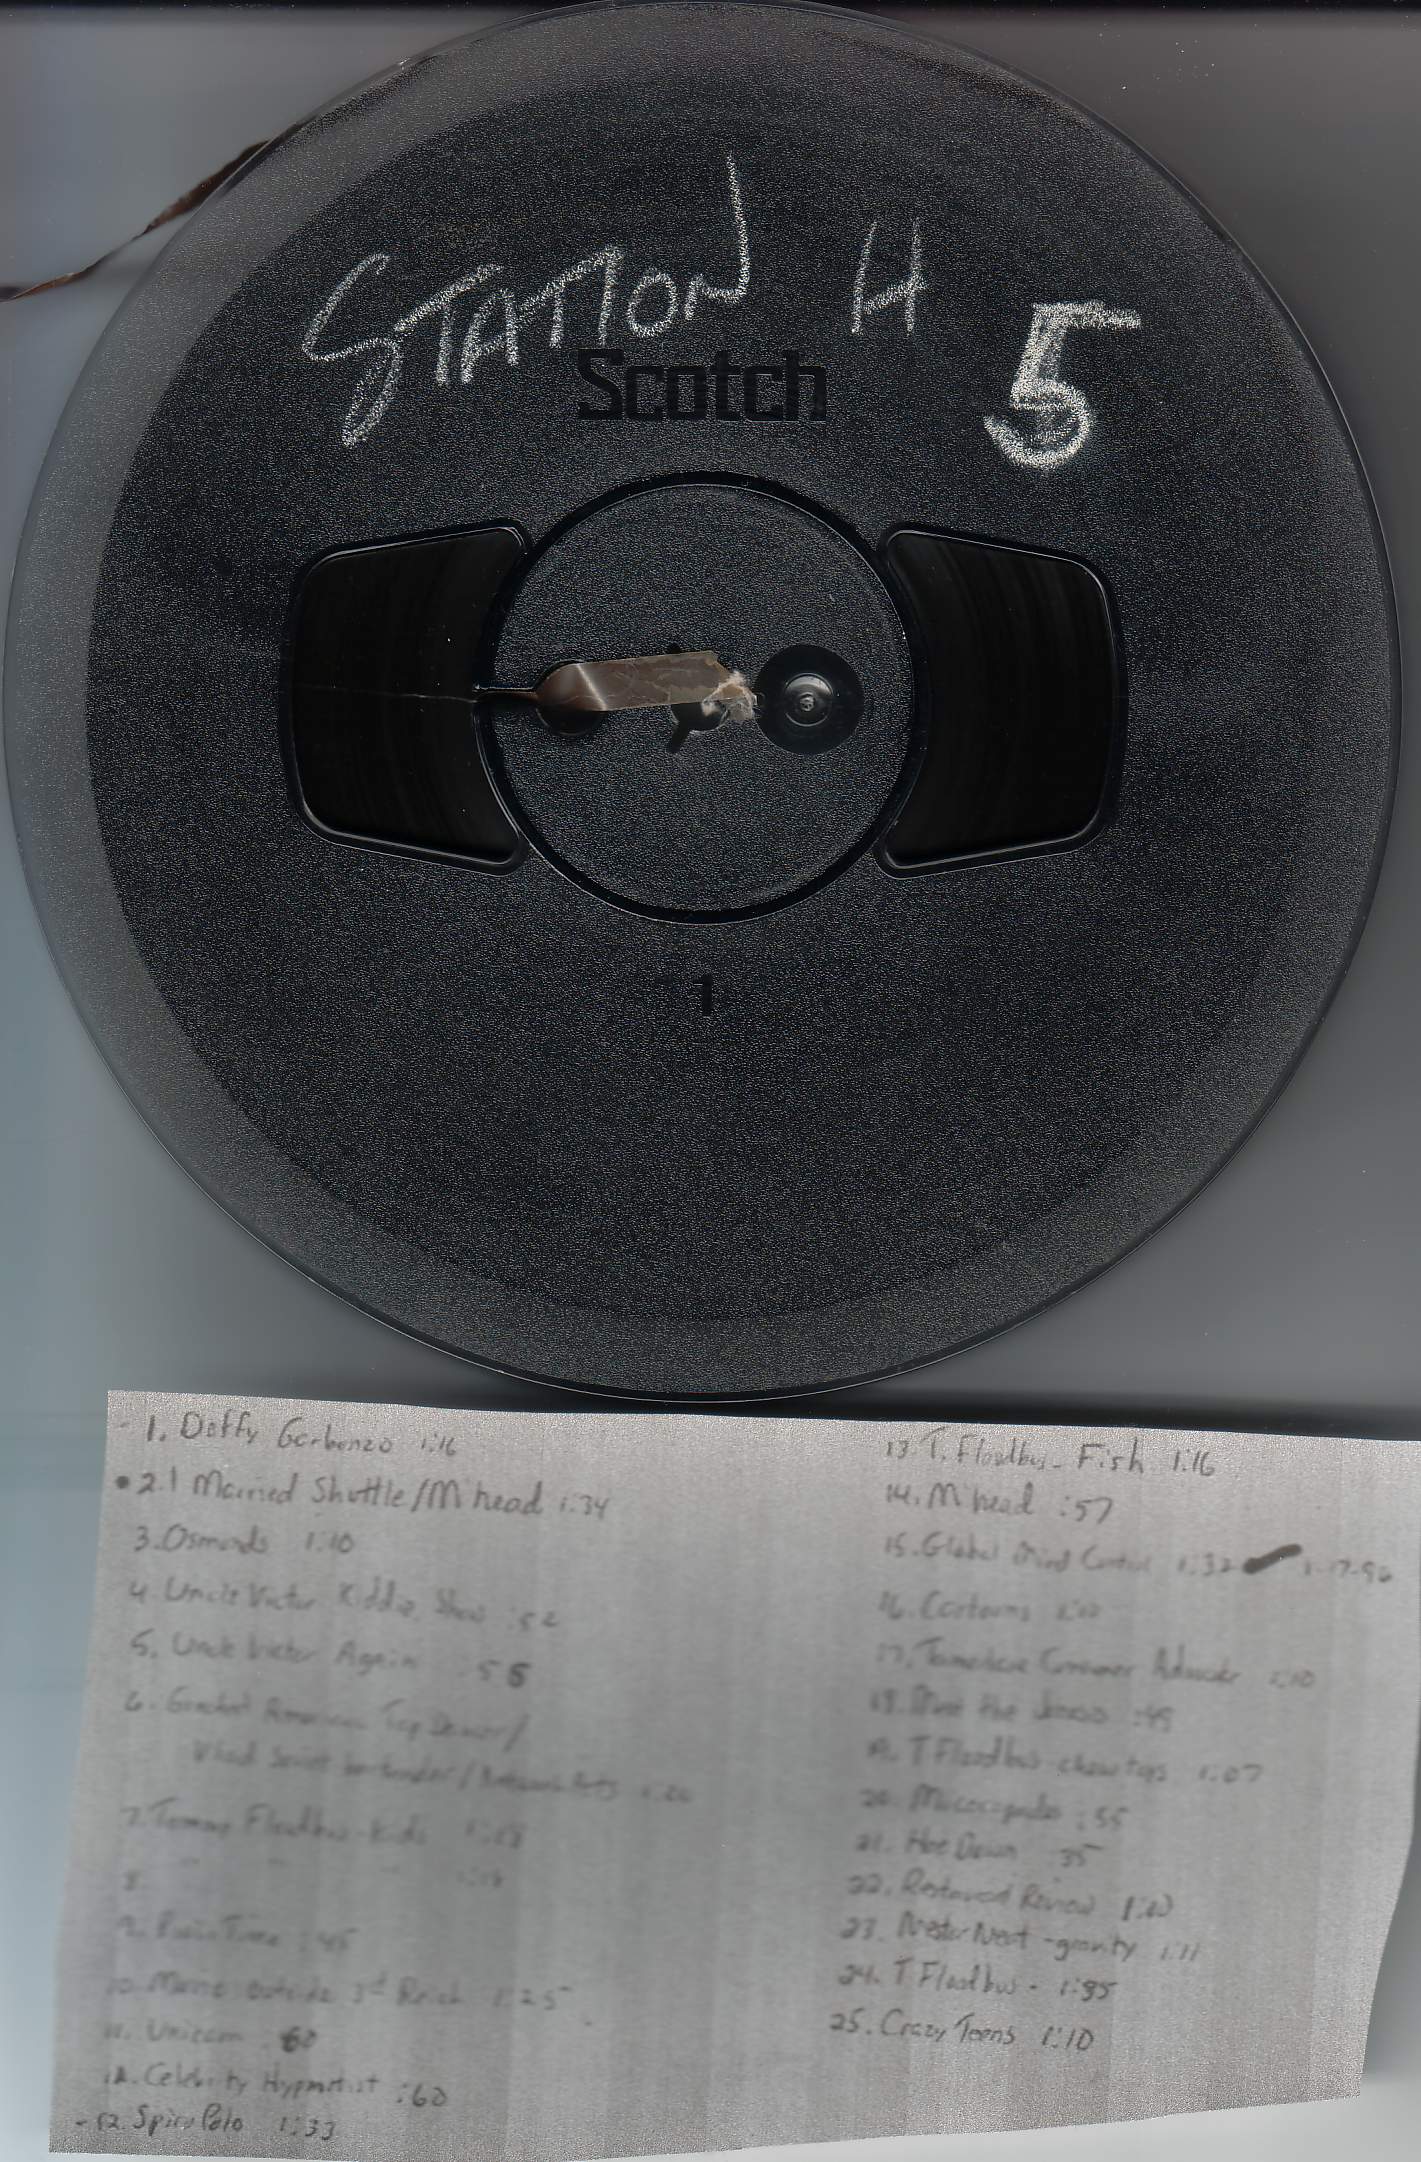 STATION H
5
Scotch
1
1. Daffy Garbonzo 1:16
2.1 Married Shuttle/M'head 1:34
3. Osmonds 1:10
4. Uncle Victor Kiddie Show :52
5. Uncle Victor Again :55
6. American Tap Dancer/
7. Tommy Floodbus - Kids
8.
9. Time :45
10. outside 3rd Reich 1:25
11. Unicorn :60
12. Celebrity Hypnotist :60
- 12. Spico Polo 1:33
13. T. Floodbus - Fish 1:16
14. M'head :57
15. Global Mind Control 1:32 1-17-96
16. Cartoons
17. Consumer Advocate 1:10
18. the :49
19. T Floodbus - 1:07
20. :55
21. Hoe Down 35
22. Restaurant Review 1:10
23. Mister Neat - gravity 1:11
24. T Floodbus - 1:35
25. Crazy Teens 1:10